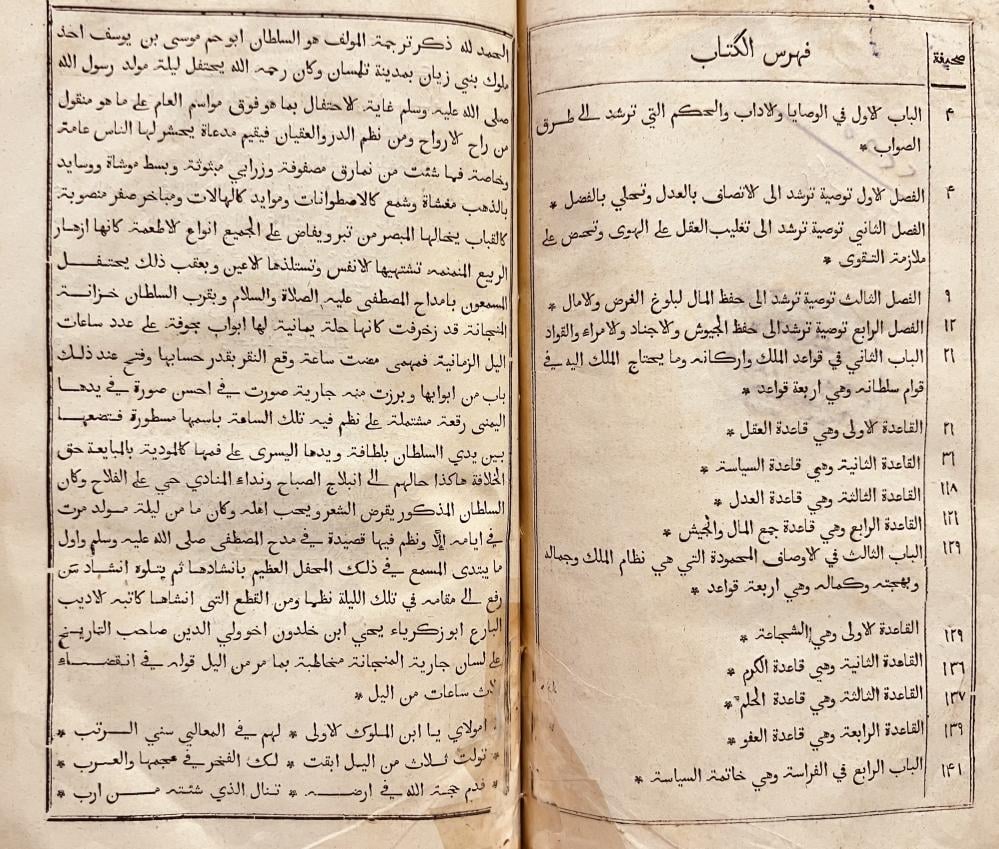 فهرس الكتاب
صحيفة
الباب الاول في الوصايا والاداب والحكم التي ترشد الى طرق ٤
الصواب *
الفصل الاول توصية ترشد الى الاتصاف بالعدل وتحلي بالفضل * ٤
الفصل الثاني توصية ترشد الى تغليب العقل على الهوى وتحض على
ملازمة التقوى *
الفصل الثالث توصية ترشد الى حفظ المال لبلوغ الغرض والامال * ٩
الفصل الرابع توصية ترشد الى حفظ الجيوش والاجناد والامراء والقواد ١٢
الباب الثاني في قواعد الملك واركانه وما يحتاج الملك اليه في ٢١
قوام سلطانه وهي اربعة قواعد *
القاعدة الاولى وهي قاعدة العقل * ٢١
القاعدة الثانية وهي قاعدة السياسة * ٣٦
القاعدة الثالثة وهي قاعدة العدل * ١١٨
القاعدة الرابع وهي قاعدة جمع المال والجيش * ١٢١
الباب الثالث في الاوصاف المحمودة التي هي نظام الملك وجماله ١٢٩
وبهجته وكماله وهي اربعة قواعد *
القاعدة الاولى وهي الشجاعة * ١٢٩
القاعدة الثانية وهي قاعدة الكرم * ١٣٦
القاعدة الثالثة وهي قاعدة الحلم * ١٣٧
القاعدة الرابعة وهي قاعدة العفو * ١٣٩
الباب الرابع في الفراسة وهي خاتمة السياسة * ١٤١
الحمد لله ذكر ترجمة المولف هو السلطان ابو حم موسى بن يوسف احد
ملوك بني زيان بمدينة تلمسان وكان رحمه الله يحتفل ليلة مولد رسول الله
صلى الله عليه وسلم غاية الاحتفال بما هو فوق مواسم العام على ما هو منقول
من راح الارواح ومن نظم الدر والعقيان فيقيم مدعاة يحشر لها الناس عامة
وخاصة فما شئت من نمارق مصفوفة وزرابي مبثوثة وبسط موشاة ووسايد
بالذهب مغشاة وشمع كالاصطوانات وموايد كالهالات ومباخر صفر منصوبة
كالقباب يخالها المبصر من تبر ويفاض على الجميع انواع الاطعمة كانها ازهار
الربيع المنمنمه تشتهيها الانفس وتستلذها الاعين وبعقب ذلك يحتفل
المسمعون بامداح المصطفى عليه الصلاة والسلام وبقرب السلطان خزانة
المنجانة قد زخرفت كانها حلة يمانية لها ابواب مجوفة على عدد ساعات
اليل الزمانية فمهمى مضت ساعة وقع النقر بقدر حسابها وفتح عند ذلك
باب من ابوابها وبرزت منه جارية صورت في احسن صورة في يدها
اليمنى رقعة مشتملة على نظم فيه تلك الساعة باسمها مسطورة فتضعها
بين يدي السلطان بلطافة ويدها اليسرى على فمها كالمودية بالمبايعة حق
الخلافة هاكذا حالهم الى انبلاج الصباح ونداء المنادي حي على الفلاح وكان
السلطان المذكور يقرض الشعر ويحب اهله وكان ما من ليلة مولد مرت
في ايامه الا ونظم فيها قصيدة في مدح المصطفى صلى الله عليه وسلم واول
ما يبتدى المسمع في ذلك المحفل العظيم بانشادها ثم يتلوه انشاد من
رفع الى مقامه في تلك الليلة نظما ومن القطع التى انشاها كاتبه الاديب
البارع ابو زكرياء يحي ابن خلدون اخو ولي الدين صاحب التاريخ
على لسان جارية المنجانة مخاطبة بما مر من اليل قوله في انقضاء
ثلاث ساعات من اليل *
امولاي يا ابن الملوك الاولى * لهم في المعالي سني الرتب *
* تولت ثلاث من اليل ابقت * لك الفخر في عجمها والعرب *
* فدم حجة الله في ارضه * تنال الذي شئته من ارب *